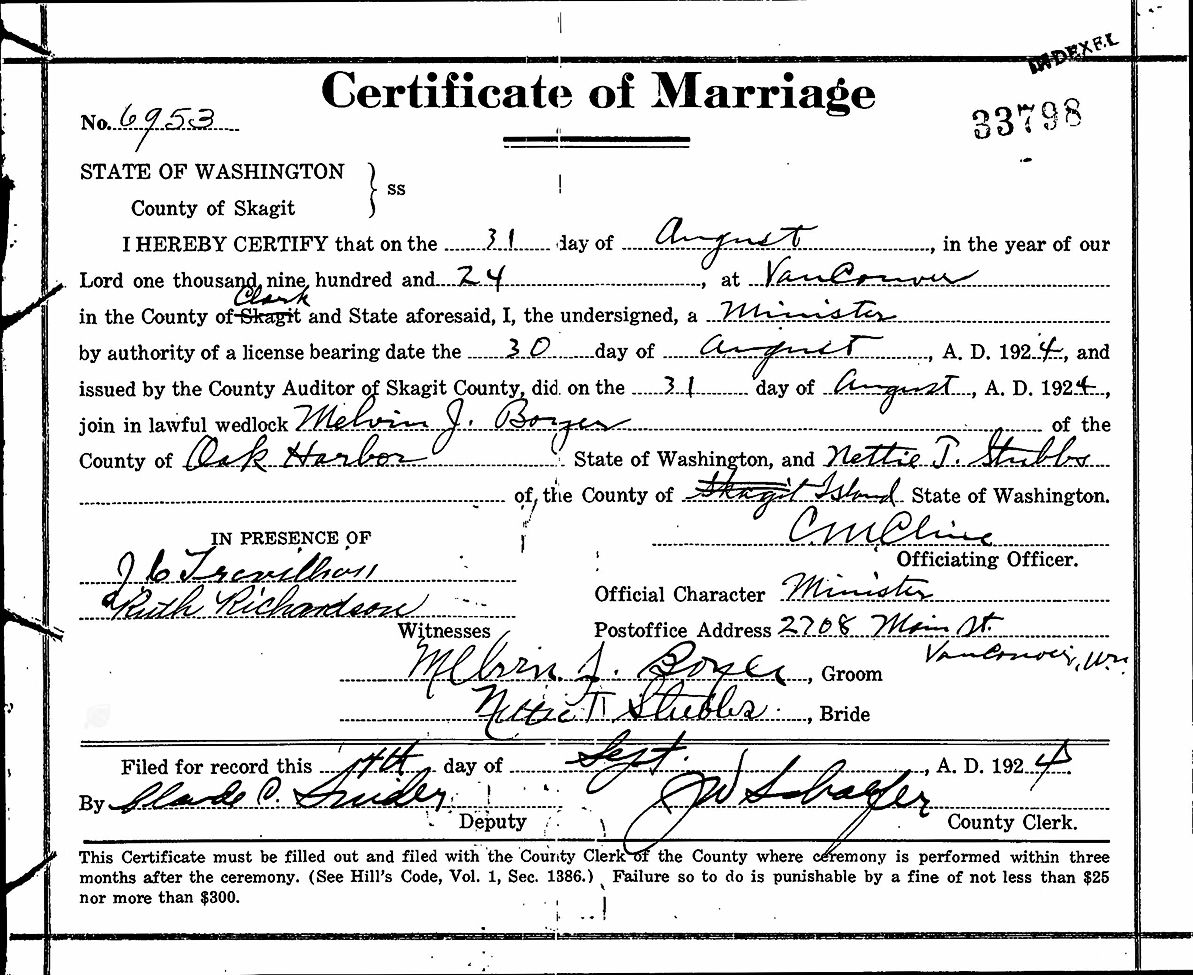 INDEXED
Certificate of Marriage
No. 6953
33798
STATE OF WASHINGTON
ss
County of Skagit
I HEREBY CERTIFY that on the 31 day of August, in the year of our
Lord one thousand nine hundred and 24, at VanCouver
Clark
in the County of Skagit and State aforesaid, I, the undersigned, a Minister
by authority of a license bearing date the 30 day of August, A. D. 1924, and
issued by the County Auditor of Skagit County, did on the 31 day of August, A. D. 1924,
join in lawful wedlock Melvin J. Boyer of the
County of Oak Harbor State of Washington, and Nettie T. Stubbs
of the County of Skagit Island State of Washington.
C M Cline
IN PRESENCE OF
Officiating Officer.
J C Trevillian
Official Character Minister
Ruth Richardson
Witnesses
Postoffice Address 2708 Main St.
VanCouver, Wn
Melvin J. Boyer, Groom
Nettie T Stubbs, Bride
Filed for record this 4th day of Sept., A. D. 1924
By C. Snider
J W Schaefer
Deputy
County Clerk.
This Certificate must be filled out and filed with the County Clerk of the County where ceremony is performed within three
months after the ceremony. (See Hill's Code, Vol. 1, Sec. 1386.) Failure so to do is punishable by a fine of not less than $25
nor more than $300.